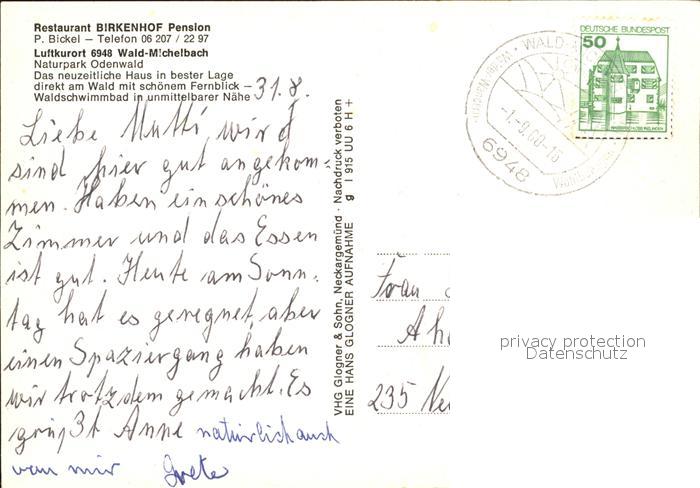 Restaurant BIRKENHOF Pension
P. Bickel – Telefon 06 207 / 22 97
Luftkurort 6948 Wald-Michelbach
Naturpark Odenwald
Das neuzeitliche Haus in bester Lage
direkt am Wald mit schönem Fernblick –
Waldschwimmbad in unmittelbarer Nähe
31.8.
Liebe Mutti, wir
sind hier gut angekom-
men. Haben ein schönes
Zimmer und das Essen
ist gut. Heute am Sonn-
tag hat es geregnet, aber
einen Spaziergang haben
wir trotzdem gemacht. Es
grüßt Anne natürlich auch
von mir Grete
VHG Glogner & Sohn, Neckargemünd · Nachdruck verboten
EINE HANS GLOGNER AUFNAHME g I 915 UU 6 H +
DEUTSCHE BUNDESPOST
50
WALD-
-1.-9.80-16
6948
Frau
235
privacy protection
Datenschutz